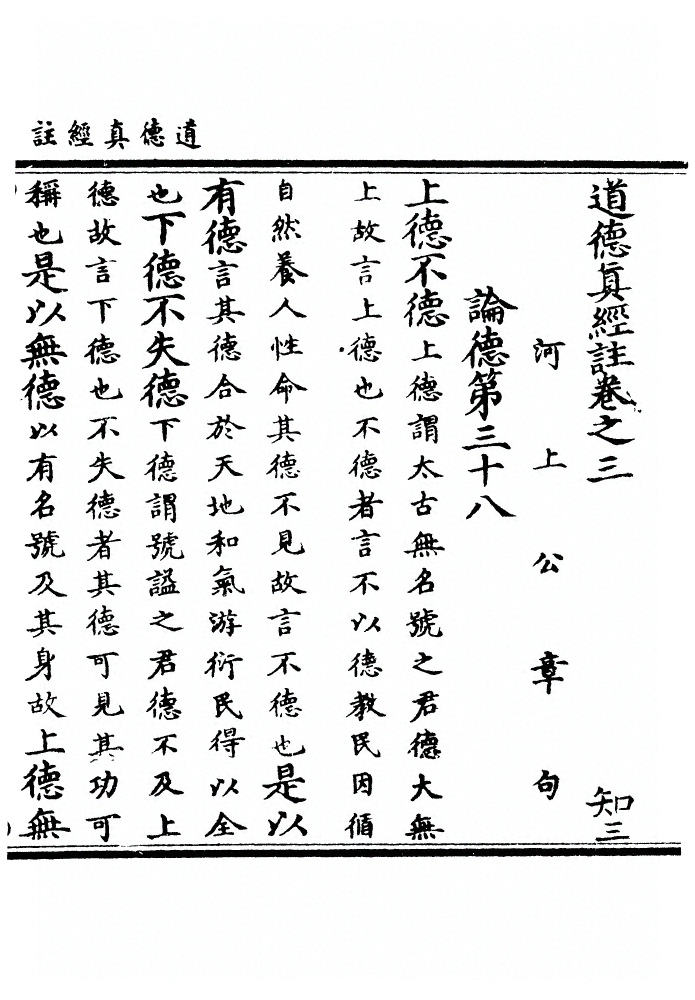 道德真經註
道德真經註卷之三　知三
河上公章句
論德第三十八
上德不德上德謂太古無名號之君德大無
上故言上德也不德者言不以德教民因循
自然養人性命其德不見故言不德也是以
有德言其德合於天地和氣游衍民得以全
也下德不失德下德謂號謚之君德不及上
德故言下德也不失德者其德可見其功可
稱也是以無德以有名號及其身故上德無